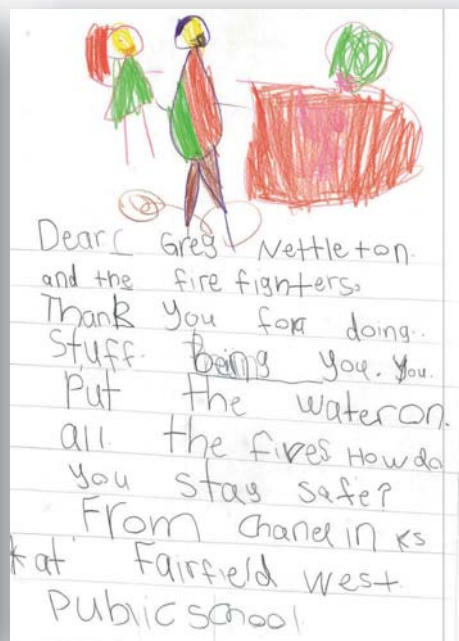 Dear Greg Nettleton
and the fire fighters.
Thank You for doing..
Stuff. Being you. You.
Put the wateron.
all the fires How do
you stay safe?
From Chanel in KS
at Fairfield west.
Public school